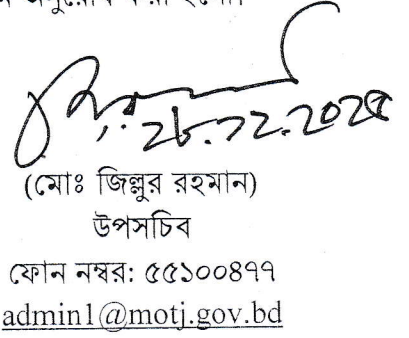 (মোঃ জিল্লুর রহমান)
উপসচিব
ফোন নম্বর: ৫৫১০০৪৭৭
admin1@motj.gov.bd